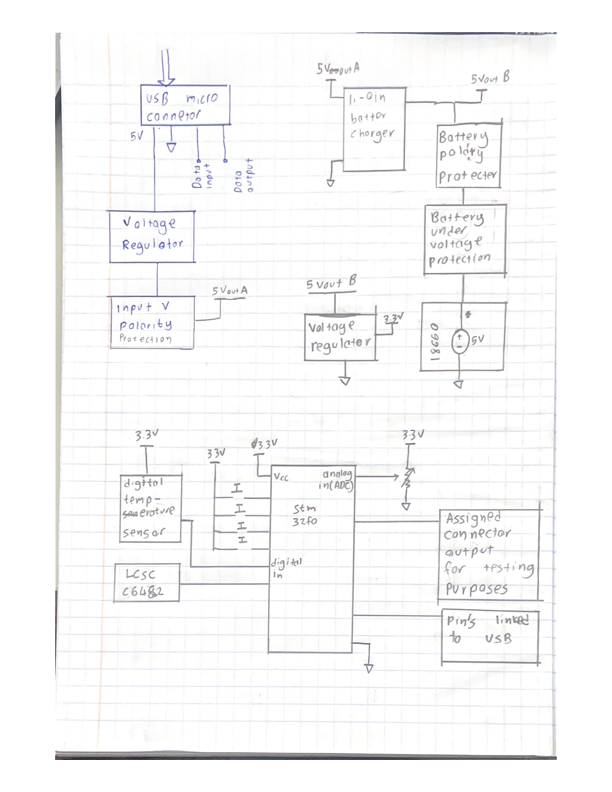 USB micro
connetor
5V
Data
input
Data
output
Voltage
Regulator
5VoutA
Input V
polarity
Protection
5Vout A
li-oin
batter
charger
5Vout B
Battery
polarity
Protecter
Battery
under
voltage
protection
18660
5V
5Vout B
Voltage
regulator
3.3V
3.3V
digital
temp-
erature
sensor
LCSC
33V
3.3V
Vcc
analog
in(ADC)
Stm
32f0
digital
in
33V
Assigned
connector
output
for testing
Purposes
Pin's linked
to USB